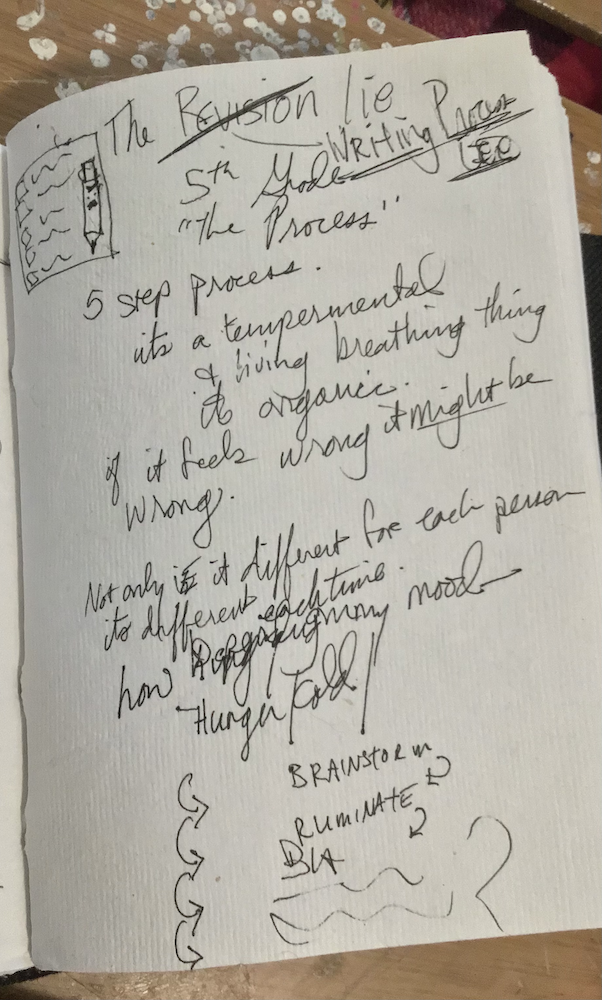 The Revision lie
Writing Process
5th Grade
"The Process"
5 step process.
its a tempermental
& living breathing thing
its organic.
if it feels wrong it might be
wrong.
Not only is it different for each person
its different each time.
how mood
Hunger/Cold
BRAINSTORM
RUMINATE
BLA